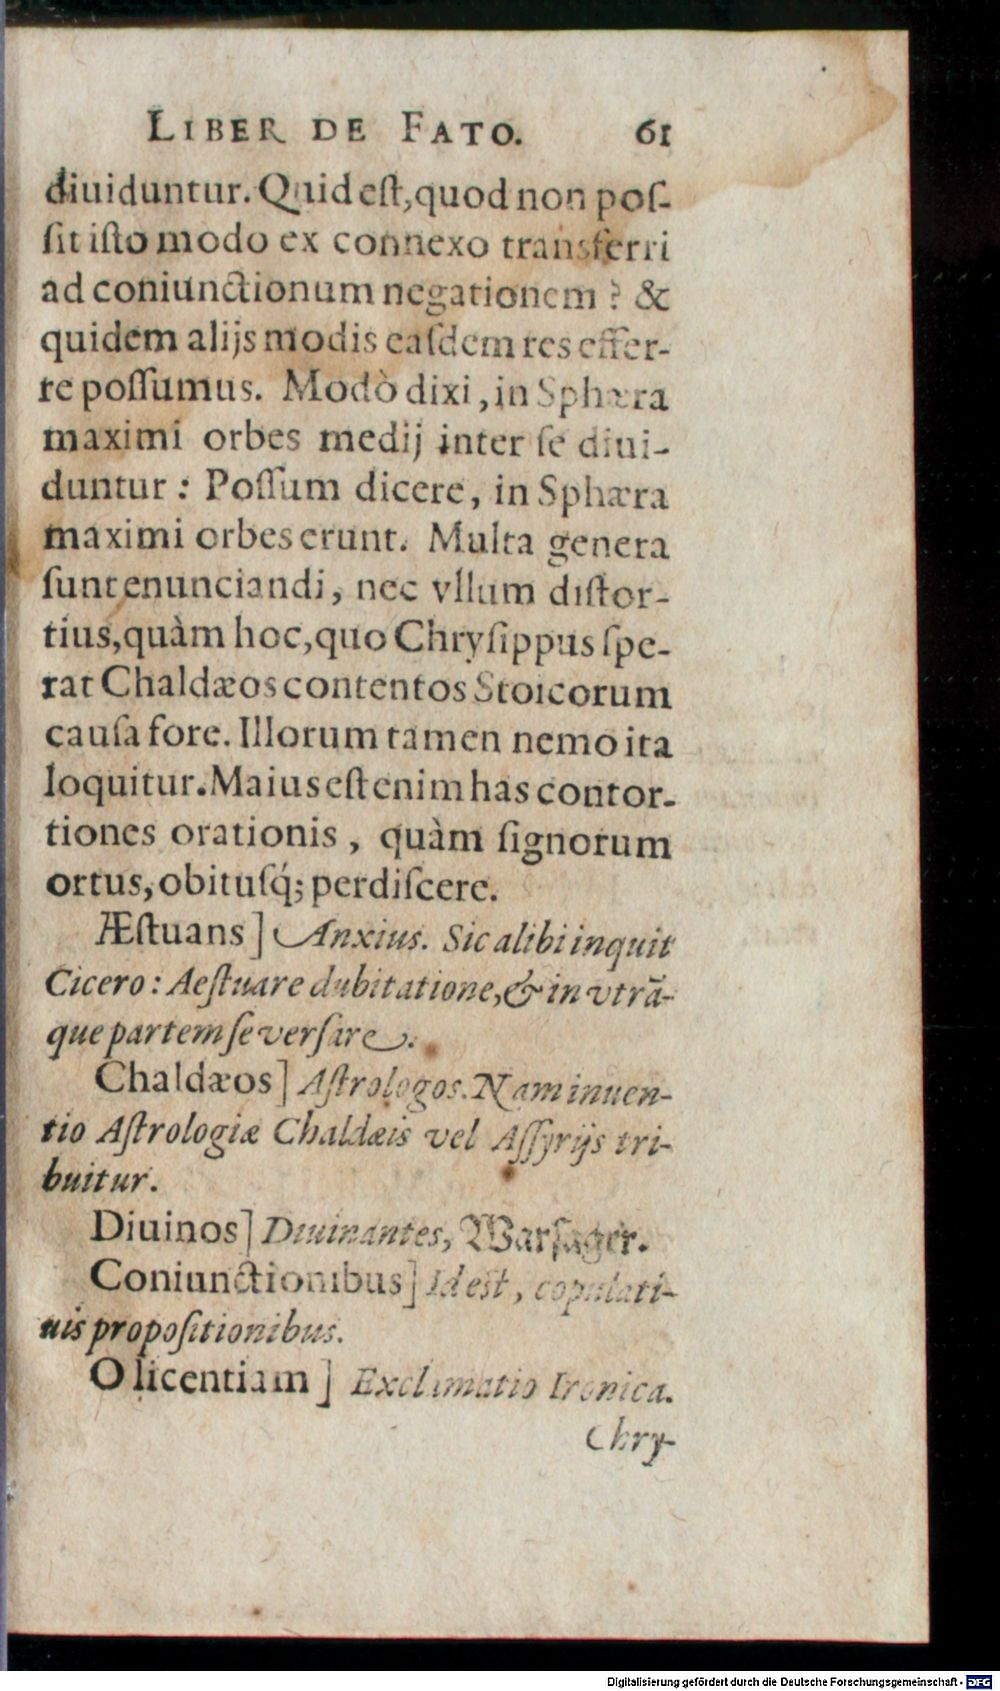 LIBER DE FATO. 61
diuiduntur. Quid est, quod non pos-
sit isto modo ex connexo transferri
ad coniunctionum negationem ? &
quidem alijs modis easdem res effer-
re possumus. Modò dixi, in Sphæra
maximi orbes medij inter se diui-
duntur : Possum dicere, in Sphæra
maximi orbes erunt. Multa genera
sunt enunciandi, nec vllum distor-
tius, quàm hoc, quo Chrysippus spe-
rat Chaldæos contentos Stoicorum
causa fore. Illorum tamen nemo ita
loquitur. Maius est enim has contor-
tiones orationis, quàm signorum
ortus, obitusq́; perdiscere.
Æstuans] Anxius. Sic alibi inquit
Cicero: Aestuare dubitatione, & in vtrā-
que partem se versare.
Chaldæos] Astrologos. Nam inuen-
tio Astrologiæ Chaldæis vel Assyrijs tri-
buitur.
Diuinos] Diuinantes, Warsager.
Coniunctionibus] Id est, copulati-
uis propositionibus.
O licentiam] Exclamatio Ironica.
Chry-
Digitalisierung gefördert durch die Deutsche Forschungsgemeinschaft - DFG